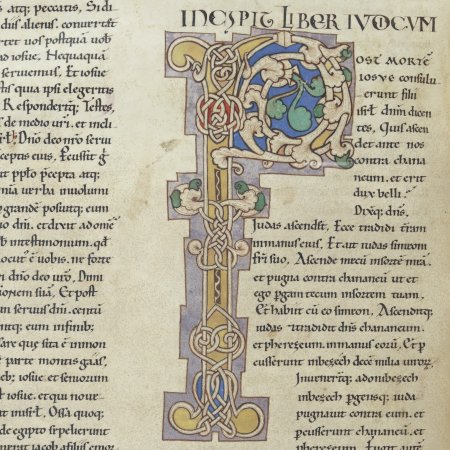 s atq; peccatis, Si di
diis alienis. conuertet
tet uos postquã uob
ad iosue, Nequaquã
seruiemus, Et iosue
quia ipsi elegeritis
Responderq; Testes,
s de medio uri. et incli
isrl. Dño deo nro serui
ceptis eius. Percussit g
ut pplo p̃cepta atq;
nia uerba in uolumi
grande. posuitq; eum
dñi. et dixit ad omnẽ
in testimonium. qđ
locut' ẽ uobis. ne forte
ri dño deo uro, Dimi
sionem suã, Et post
n seruus dñi. centũ
ntq; eum infinib;
are que sita ẽ in mon
parte montis gaas,
eb; iosue et seniorum
st iosue. et qui noue
in isrl. Ossa quoq;
de egipto sepelierunt
erat iacob a filiis emor
INCIPIT LIBER IVDICUM
POST MORTẼ
IOSVE consulu
erunt filii
isrl dñm dicen
tes, Quis ascen
det ante nos
contra chana
neum. et erit
dux belli.
Dixq; dñs,
Iudas ascendet, Ecce tradidi trãm
in manus eius, Et ait iudas simeoni
fri suo, Ascende mecũ in sortẽ meã.
et pugna contra chananeũ ut et
ego pgam tecum in sortem tuam,
Et habiit cũ eo simeon, Ascenditq;
iudas. et tradidit dñs chananeum.
et pherezeum in manus eorũ, Et p
cusserunt in bezech decẽ milia uirorũ.
Inuenertq; adonibezech
in bezech pgensq; iuda
pugnauit contra eum. et
pcusserunt chananeũ. et
pherezeum. Fugit autẽ